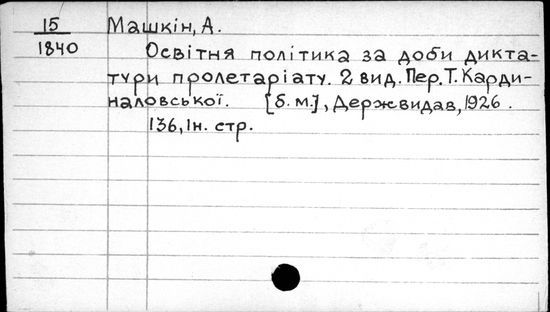 15 Машкін, А.
1840
Освітня політика за доби дикта-
тури пролетаріату. 2 вид. Пер. Т. Карди-
наловської. [б. м.], Держвидав, 1926.
136, 1н. стр.